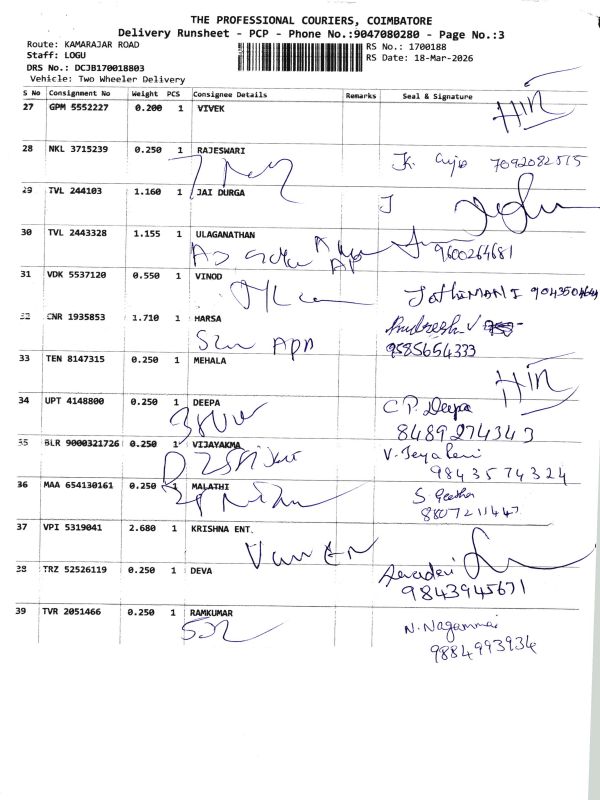 THE PROFESSIONAL COURIERS, COIMBATORE
Delivery Runsheet - PCP - Phone No.:9047080280 - Page No.:3
Route: KAMARAJAR ROAD RS No.: 1700188
Staff: LOGU RS Date: 18-Mar-2026
DRS No.: DCJB170018803
Vehicle: Two Wheeler Delivery
S No Consignment No Weight PCS Consignee Details Remarks Seal & Signature
27 GPM 5552227 0.200 1 VIVEK
28 NKL 3715239 0.250 1 RAJESWARI
7092082515
29 TVL 244103 1.160 1 JAI DURGA
30 TVL 2443328 1.155 1 ULAGANATHAN
9600264681
31 VDK 5537120 0.550 1 VINOD
JOTHIMANI
32 CNR 1935853 1.710 1 HARSA
9585654333
33 TEN 8147315 0.250 1 MEHALA
34 UPT 4148800 0.250 1 DEEPA C P. Deepa
8489274343
35 BLR 9000321726 0.250 1 VIJAYAKMA
9843574324
36 MAA 654130161 0.250 1 MALATHI
8807211447
37 VPI 5319041 2.680 1 KRISHNA ENT.
38 TRZ 52526119 0.250 1 DEVA
9843945671
39 TVR 2051466 0.250 1 RAMKUMAR
N. Nagammai
9884993934